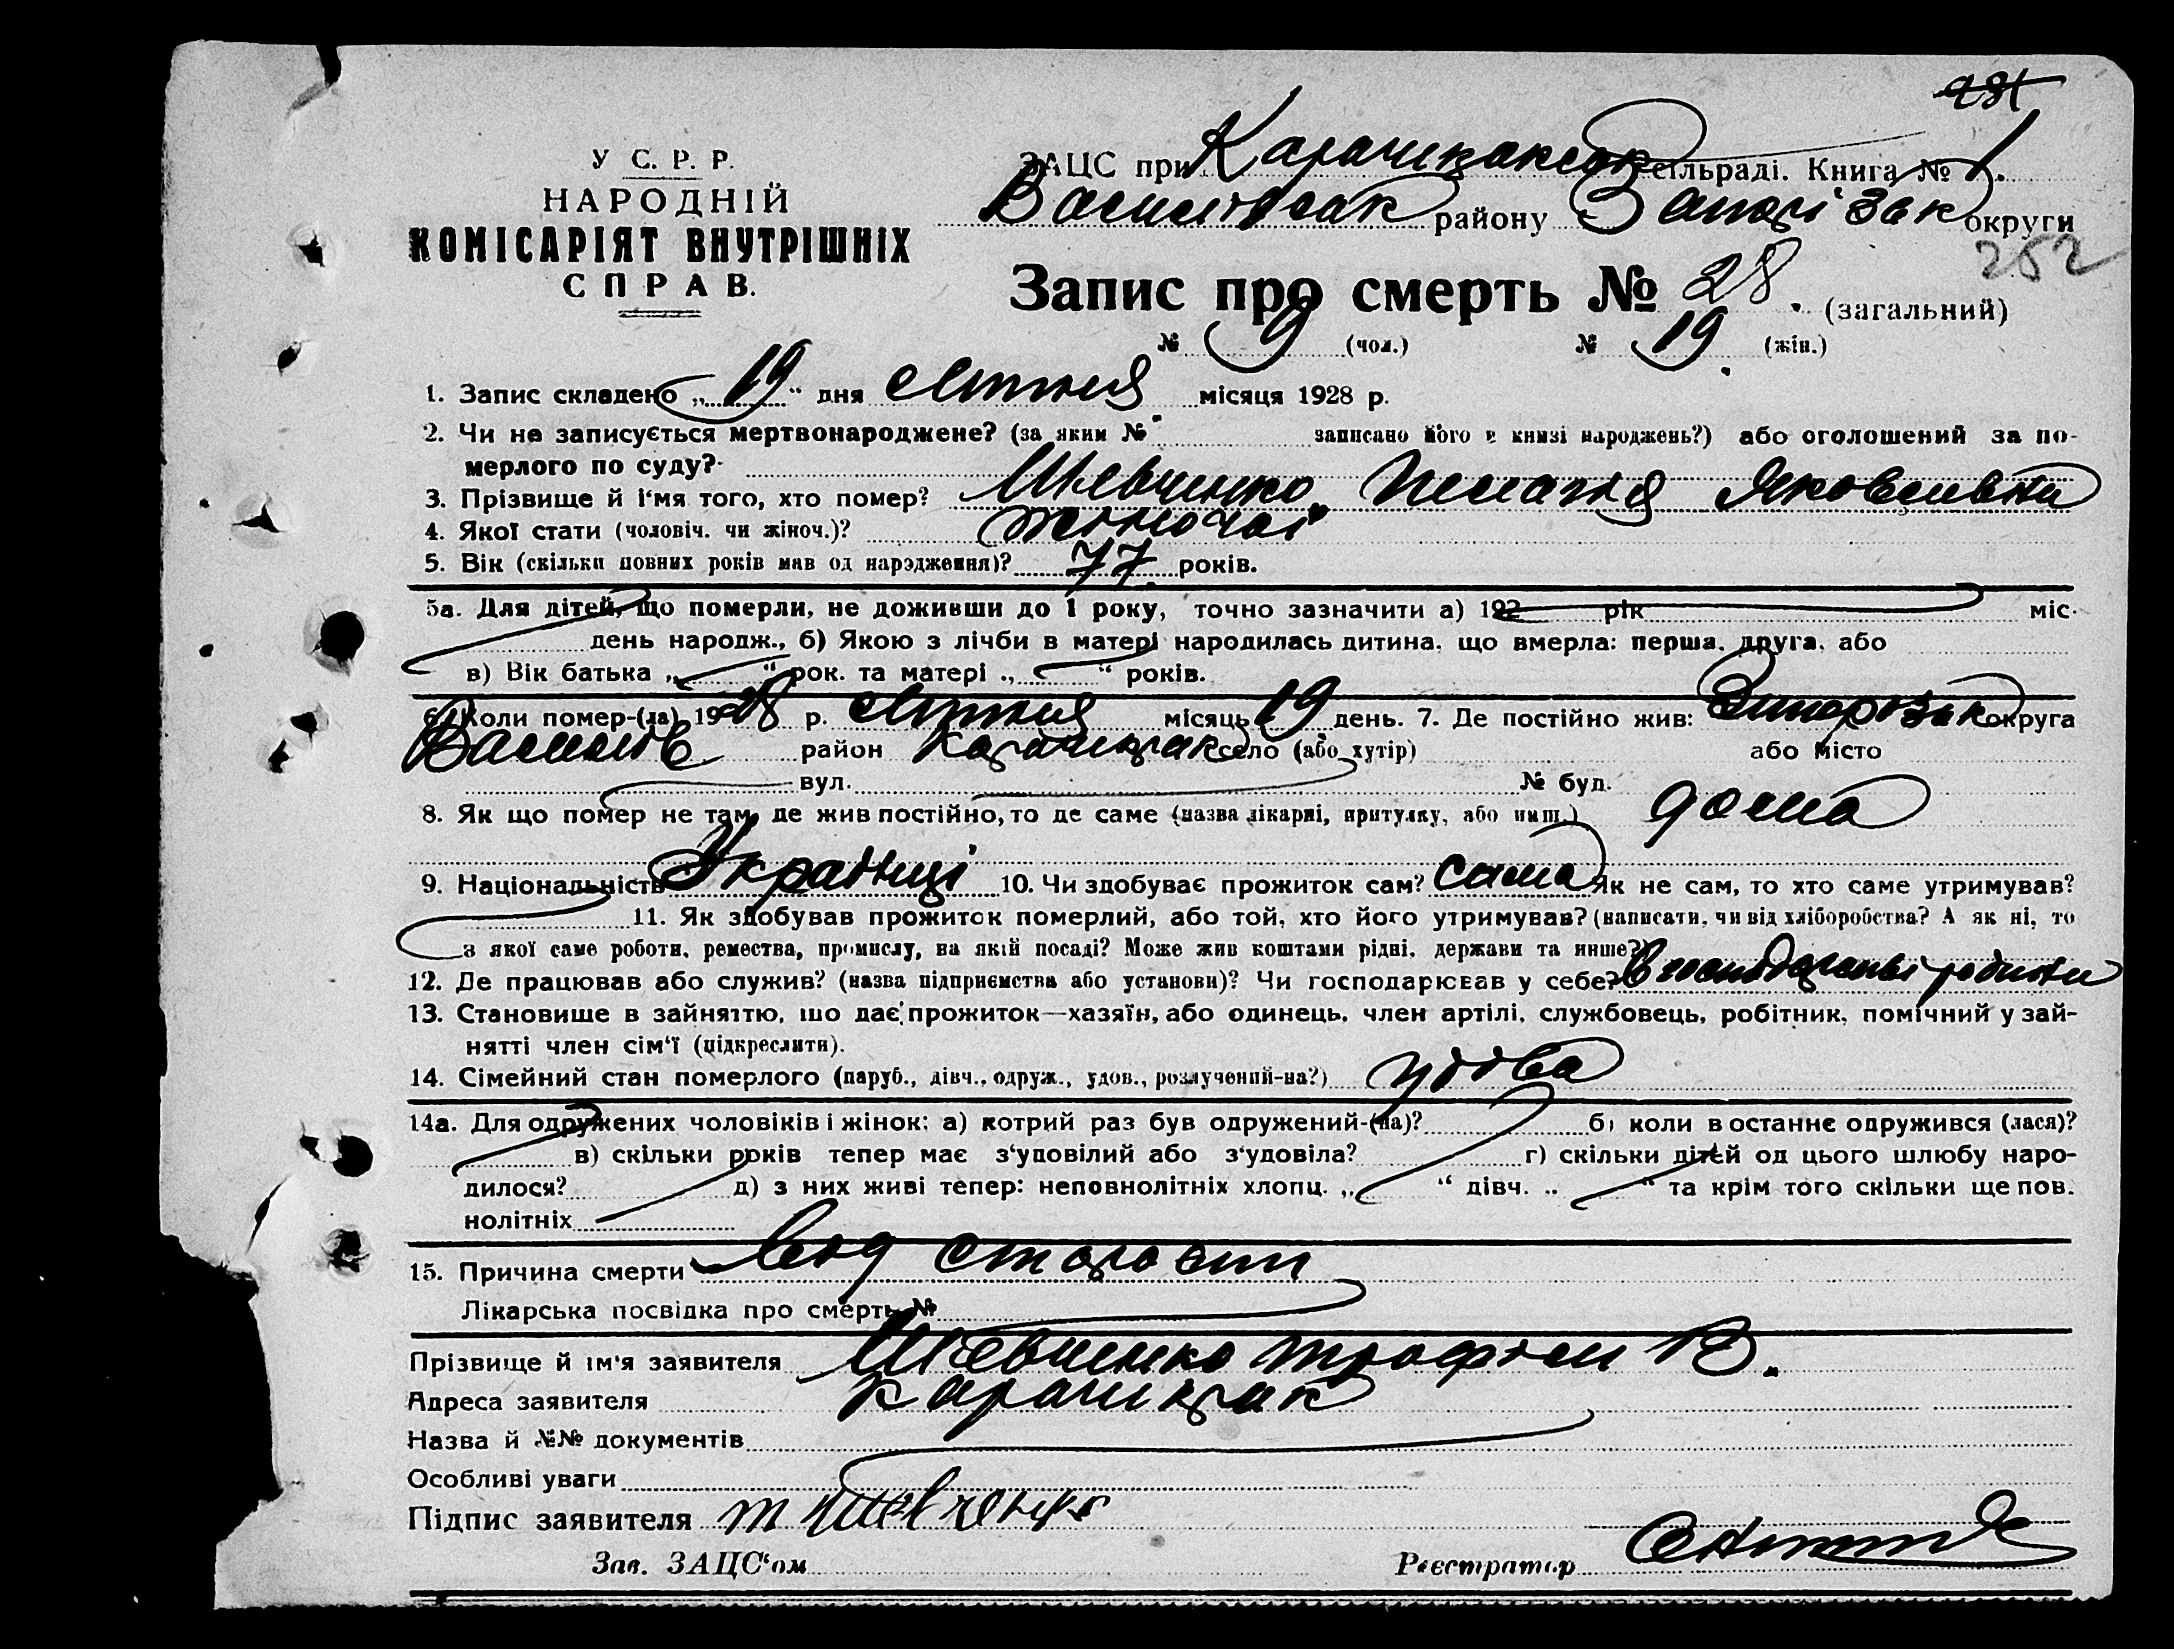 231
У С. Р. Р.
НАРОДНІЙ
КОМІСАРІЯТ ВНУТРІШНІХ
СПРАВ.
ЗАЦС при Карачикакськ сільраді. Книга № 1.
Василівськ району Запорізьк округи
252
Запис про смерть № 28. (загальний)
№ 9 (чол.) № 19 (жін.)
1. Запис складено „ 19 “ дня лютня місяця 1928 р.
2. Чи не записується мертвонароджене? (за яким № записано його в книзі народжень?) або оголошений за по-
мерлого по суду?
3. Прізвище й і‘мя того, хто помер? Шевченко Пелагия Яковливна
4. Якої стати (чоловіч. чи жіноч.)? жіночої
5. Вік (скільки повних років мав од нарэдження)? 77 років.
5а. Для дітей, що померли, не доживши до 1 року, точно зазначити а) 192 рік міс.
день народж., б) Якою з лічби в матері народилась дитина, що вмерла: перша, друга, або
в) Вік батька „ “ рок. та матері „ “ років.
6. Коли помер-(ла) 1928 р. лютня місяць 19 день. 7. Де постійно жив: Запорізьк округа
Василів район Карачикрак село (або хутір) або місто
вул. № буд.
8. Як що помер не там, де жив постійно, то де саме (назва лікарні, притулку, або инш.) дома
9. Національність Українці 10. Чи здобуває прожиток сам? сама Як не сам, то хто саме утримував?
11. Як здобував прожиток померлий, або той, хто його утримував? (написати, чи від хліборобства? А як ні, то
з якої саме роботи, ремества, промислу, на якій посаді? Може жив коштами рідні, держави та инше?)
12. Де працював або служив? (назва підприємства або установи)? Чи господарював у себе? в господарстві родини
13. Становище в зайняттю, що дає прожиток—хазяїн, або одинець, член артілі, службовець, робітник, помічний у зай-
нятті член сім‘ї (підкреслити).
14. Сімейний стан померлого (паруб., дівч., одруж., удов., розлучений-на?) удова
14а. Для одружених чоловіків і жінок: а) котрий раз був одружений-(на)? б) коли востаннє одружився (лася)?
в) скільки років тепер має з‘удовілий або з‘удовіла? г) скільки дітей од цього шлюбу наро-
дилося? д) з них живі тепер: неповнолітніх хлопц. „ “ дівч. „ “ та крім того скільки ще пов.
нолітніх
15. Причина смерти Вод старости
Лікарська посвідка про смерть №
Прізвище й ім‘я заявителя Шевченко Трофим В.
Адреса заявителя Карачикрак
Назва й №№ документів
Особливі уваги
Підпис заявителя Т Шевченко
Зав. ЗАЦС‘ом Реєстратор